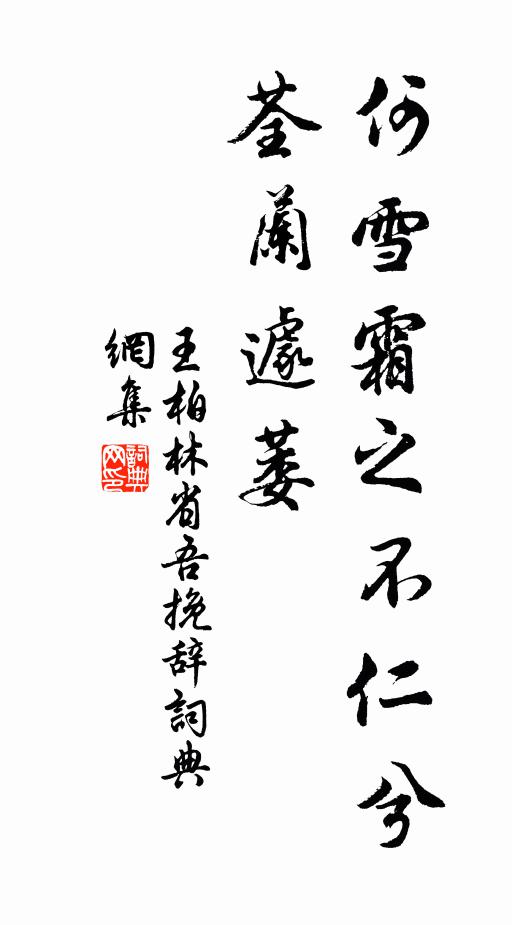 何雪霜之不仁兮
荃蘭遽萎
王柏林省吾挽辞詞典
網集
詞典
网印